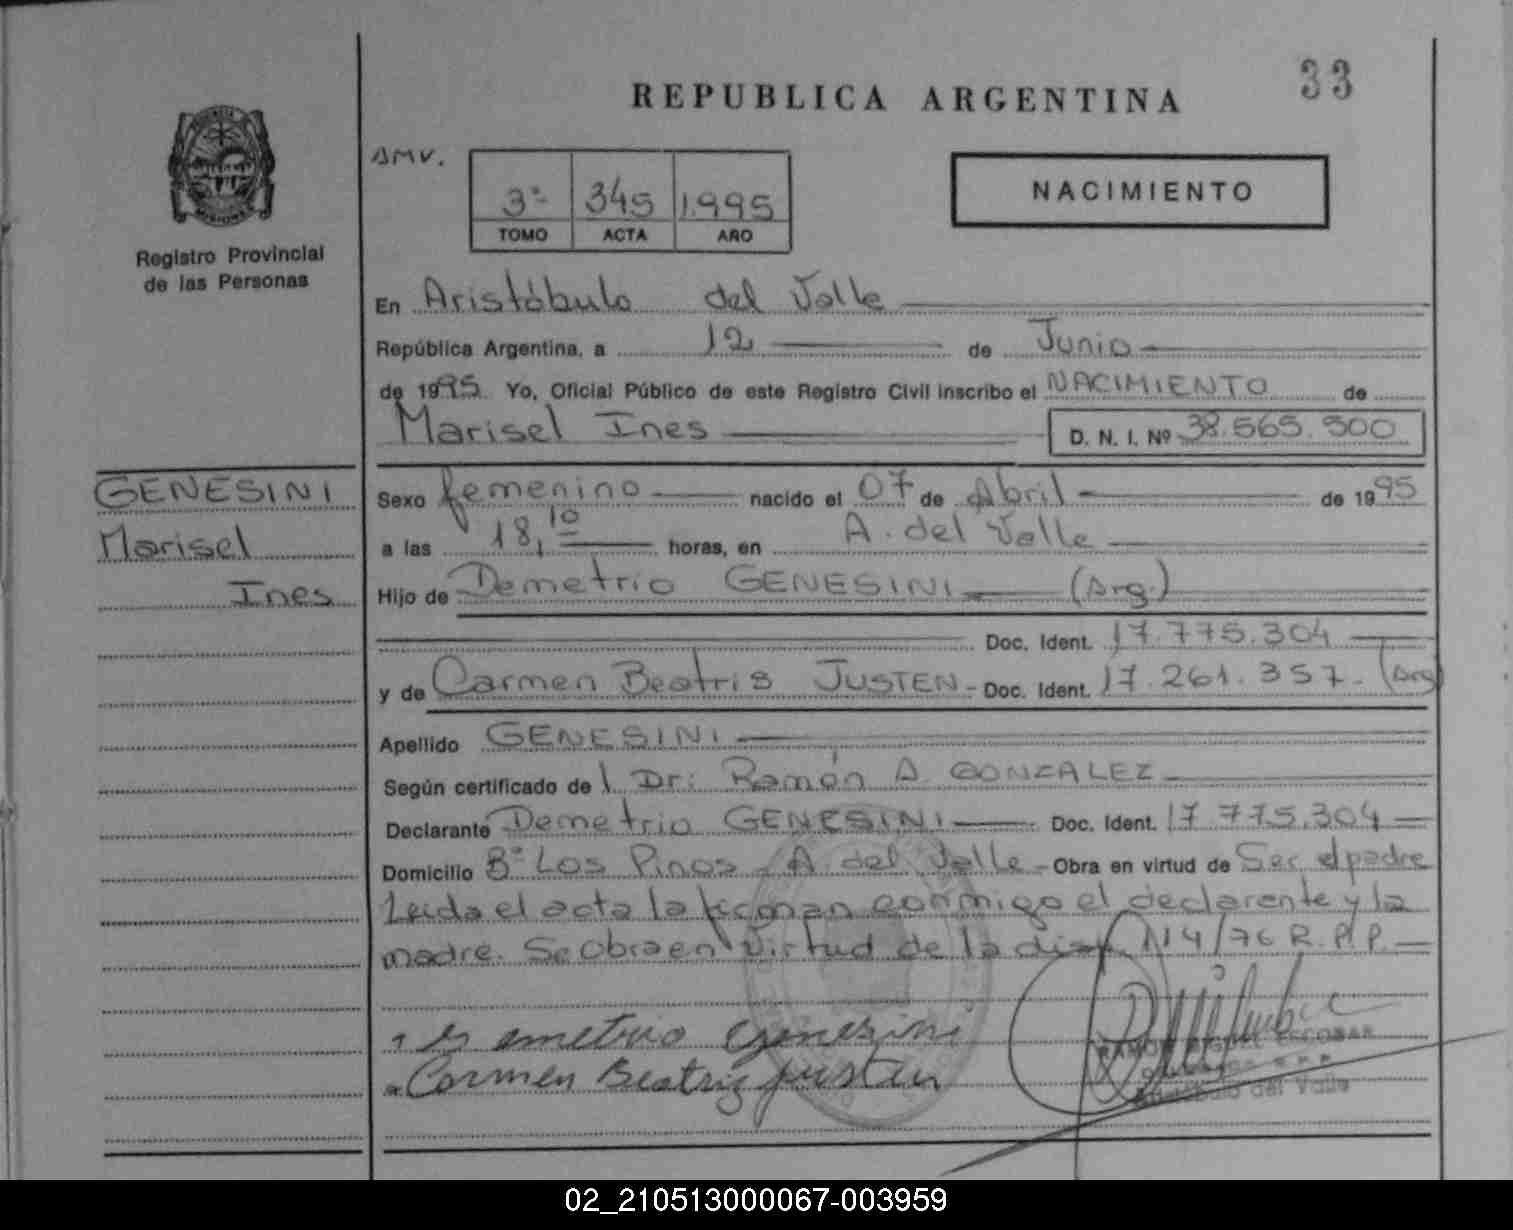 33
REPUBLICA ARGENTINA
AMV.
3º 345 1.995
TOMO ACTA AÑO
NACIMIENTO
MISIONES
Registro Provincial
de las Personas
En Aristóbulo del Valle
República Argentina, a 12 de Junio
de 1995. Yo, Oficial Público de este Registro Civil inscribo el NACIMIENTO de
Marisel Ines D. N. I. Nº 38.565.300
GENESINI
Marisel
Ines
Sexo femenino nacido el 07 de Abril de 1995
a las 18,10 horas, en A. del Valle
Hijo de Demetrio GENESINI (Arg.)
Doc. Ident. 17.775.304
y de Carmen Beatris JUSTEN - Doc. Ident. 17.261.357. (Arg)
Apellido GENESINI
Según certificado de l Dr: Ramón A. GONZALEZ
Declarante Demetrio GENESINI Doc. Ident. 17.775.304
Domicilio Bº Los Pinos - A. del Valle - Obra en virtud de Ser el padre
Leida el acta la firman conmigo el declarante y la
madre. Se obra en virtud de la disp. 114/76 R.P.P.
Demetrio Genesini
Carmen Beatriz Justen
ESCOBAR
del Valle
02_210513000067-003959